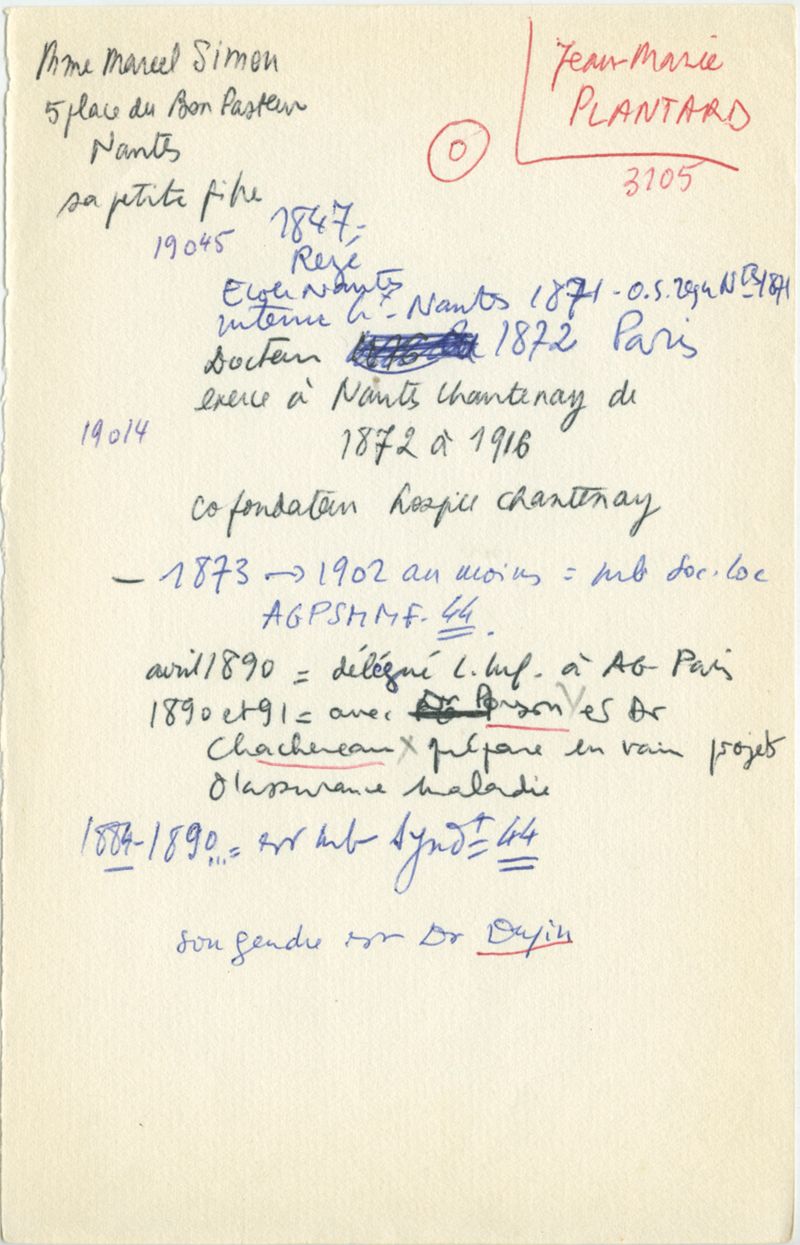 Mme Marcel Simon
5 place du Bon Pasteur
Nantes
sa petite fille
Jean-Marie
PLANTARD
0
3105
19045
1847 =
Rezé
Ecole Nantes
interne Nantes 1871 - O.S. 1871
Docteur 1872 Paris
exerce à Nantes Chantenay de
19014
1872 à 1916
cofondateur hospice Chantenay
— 1873 → 1902 au moins = mb Soc. loc
AGPSMMF. 44.
avril 1890 = délégué L. Inf. à AG Paris
1890 et 91 = avec Dr Porson et Dr
Chachereau x prépare en vain projet
d'assurance maladie
1884-1890... = est mb Syndt = 44
son gendre est Dr Dujin